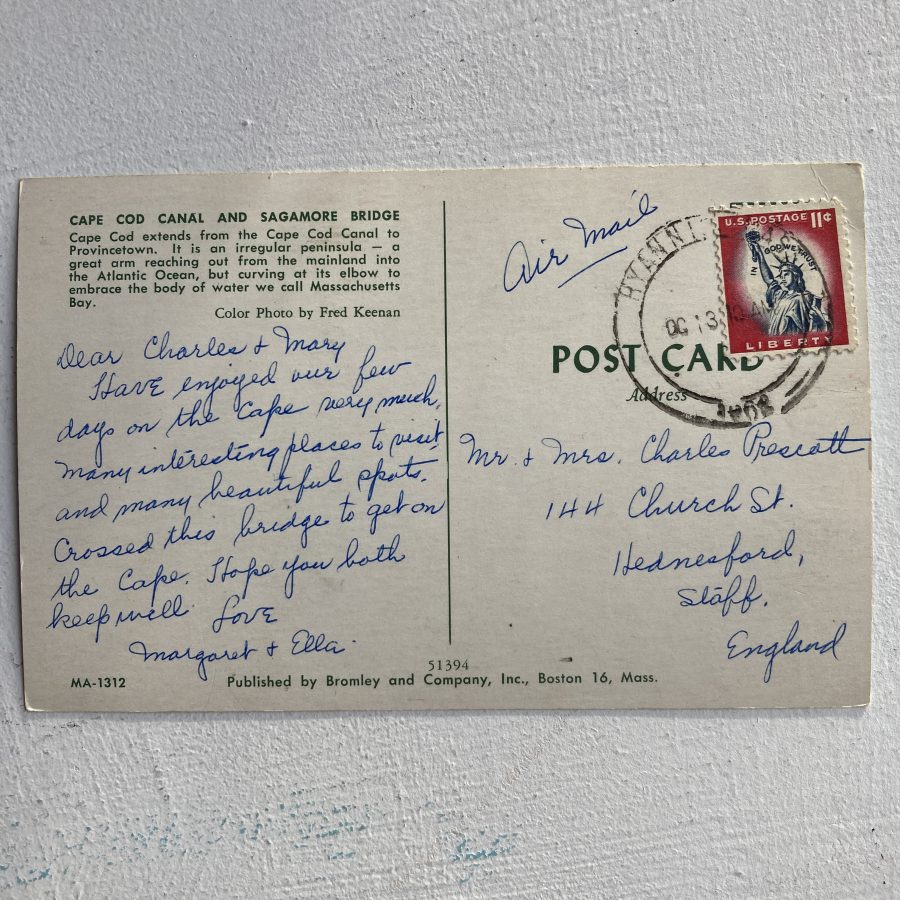 CAPE COD CANAL AND SAGAMORE BRIDGE
Cape Cod extends from the Cape Cod Canal to
Provincetown. It is an irregular peninsula — a
great arm reaching out from the mainland into
the Atlantic Ocean, but curving at its elbow to
embrace the body of water we call Massachusetts
Bay.
Color Photo by Fred Keenan
Dear Charles & Mary
Have enjoyed our few
days on the Cape very much.
Many interesting places to visit
and many beautiful spots.
Crossed this bridge to get on
the Cape. Hope you both
keep well. Love
Margaret & Ella
MA-1312
51394
Published by Bromley and Company, Inc., Boston 16, Mass.
Air Mail
U.S. POSTAGE 11¢
IN GOD WE TRUST
LIBERTY
HYANNI
OC 13 10 AM
POST CARD
Address
Mr. & Mrs. Charles Prescott
144 Church St.
Hednesford,
Staff.
England